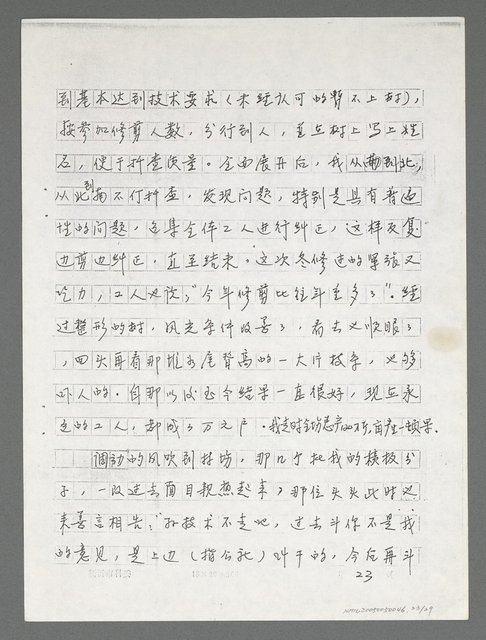 到基本达到技术要求（未经认可的暂不上树），
按参加修剪人数，分行到人，并在树上写上姓
名，便于抽查质量。全面展开后，我从南到北，
从北到南不仃抽查，发现问题，特别是具有普遍
性的问题，召集全体工人进行纠正，这样反复
边剪边纠正，直至结束。这次冬修进的紧张又
吃力，工人也说：“今年修剪比往年重多了”。经
过整形的树，风光条件改善了，看去又顺眼了
，回头再看那堆如屋脊高的一大片枝条，也够
吓人的。自那以后至今结果一直很好，现在承
包的工人，都成了万元户。我走时全场总产 万斤，亩产 顿果。
调动的风吹到林场，那几个把我的横板分
子，一改过去面目亲热起来，那位头头此时也
来善言相告：“孙技术不走吧，过去斗你不是我
的意见，是上边（指公社）叫干的，今后再斗
23
NMTL20050050046. 23/29